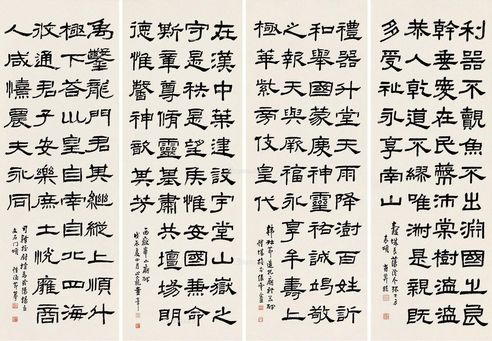 利器不覿魚不出淵國之良
幹垂愛在民蔽沛棠樹溫溫
恭人乾道不繆唯淑是親既
多受祉永享南山
禮器升堂天雨降澍百姓訢
和舉國蒙慶神靈祐誠竭敬
之報天與厥福永享牟壽上
極華紫旁伎皇代
在漢中葉建設宇堂山嶽之
守是秩是望侯惟安國兼命
斯章尊脩靈基肅共壇場明
德惟馨神歆其芳
禹鑿龍門君其繼縱上順斗
極下答巛皇自南自北四海
攸通君子安樂庶士悅雍商
人咸憘農夫永同